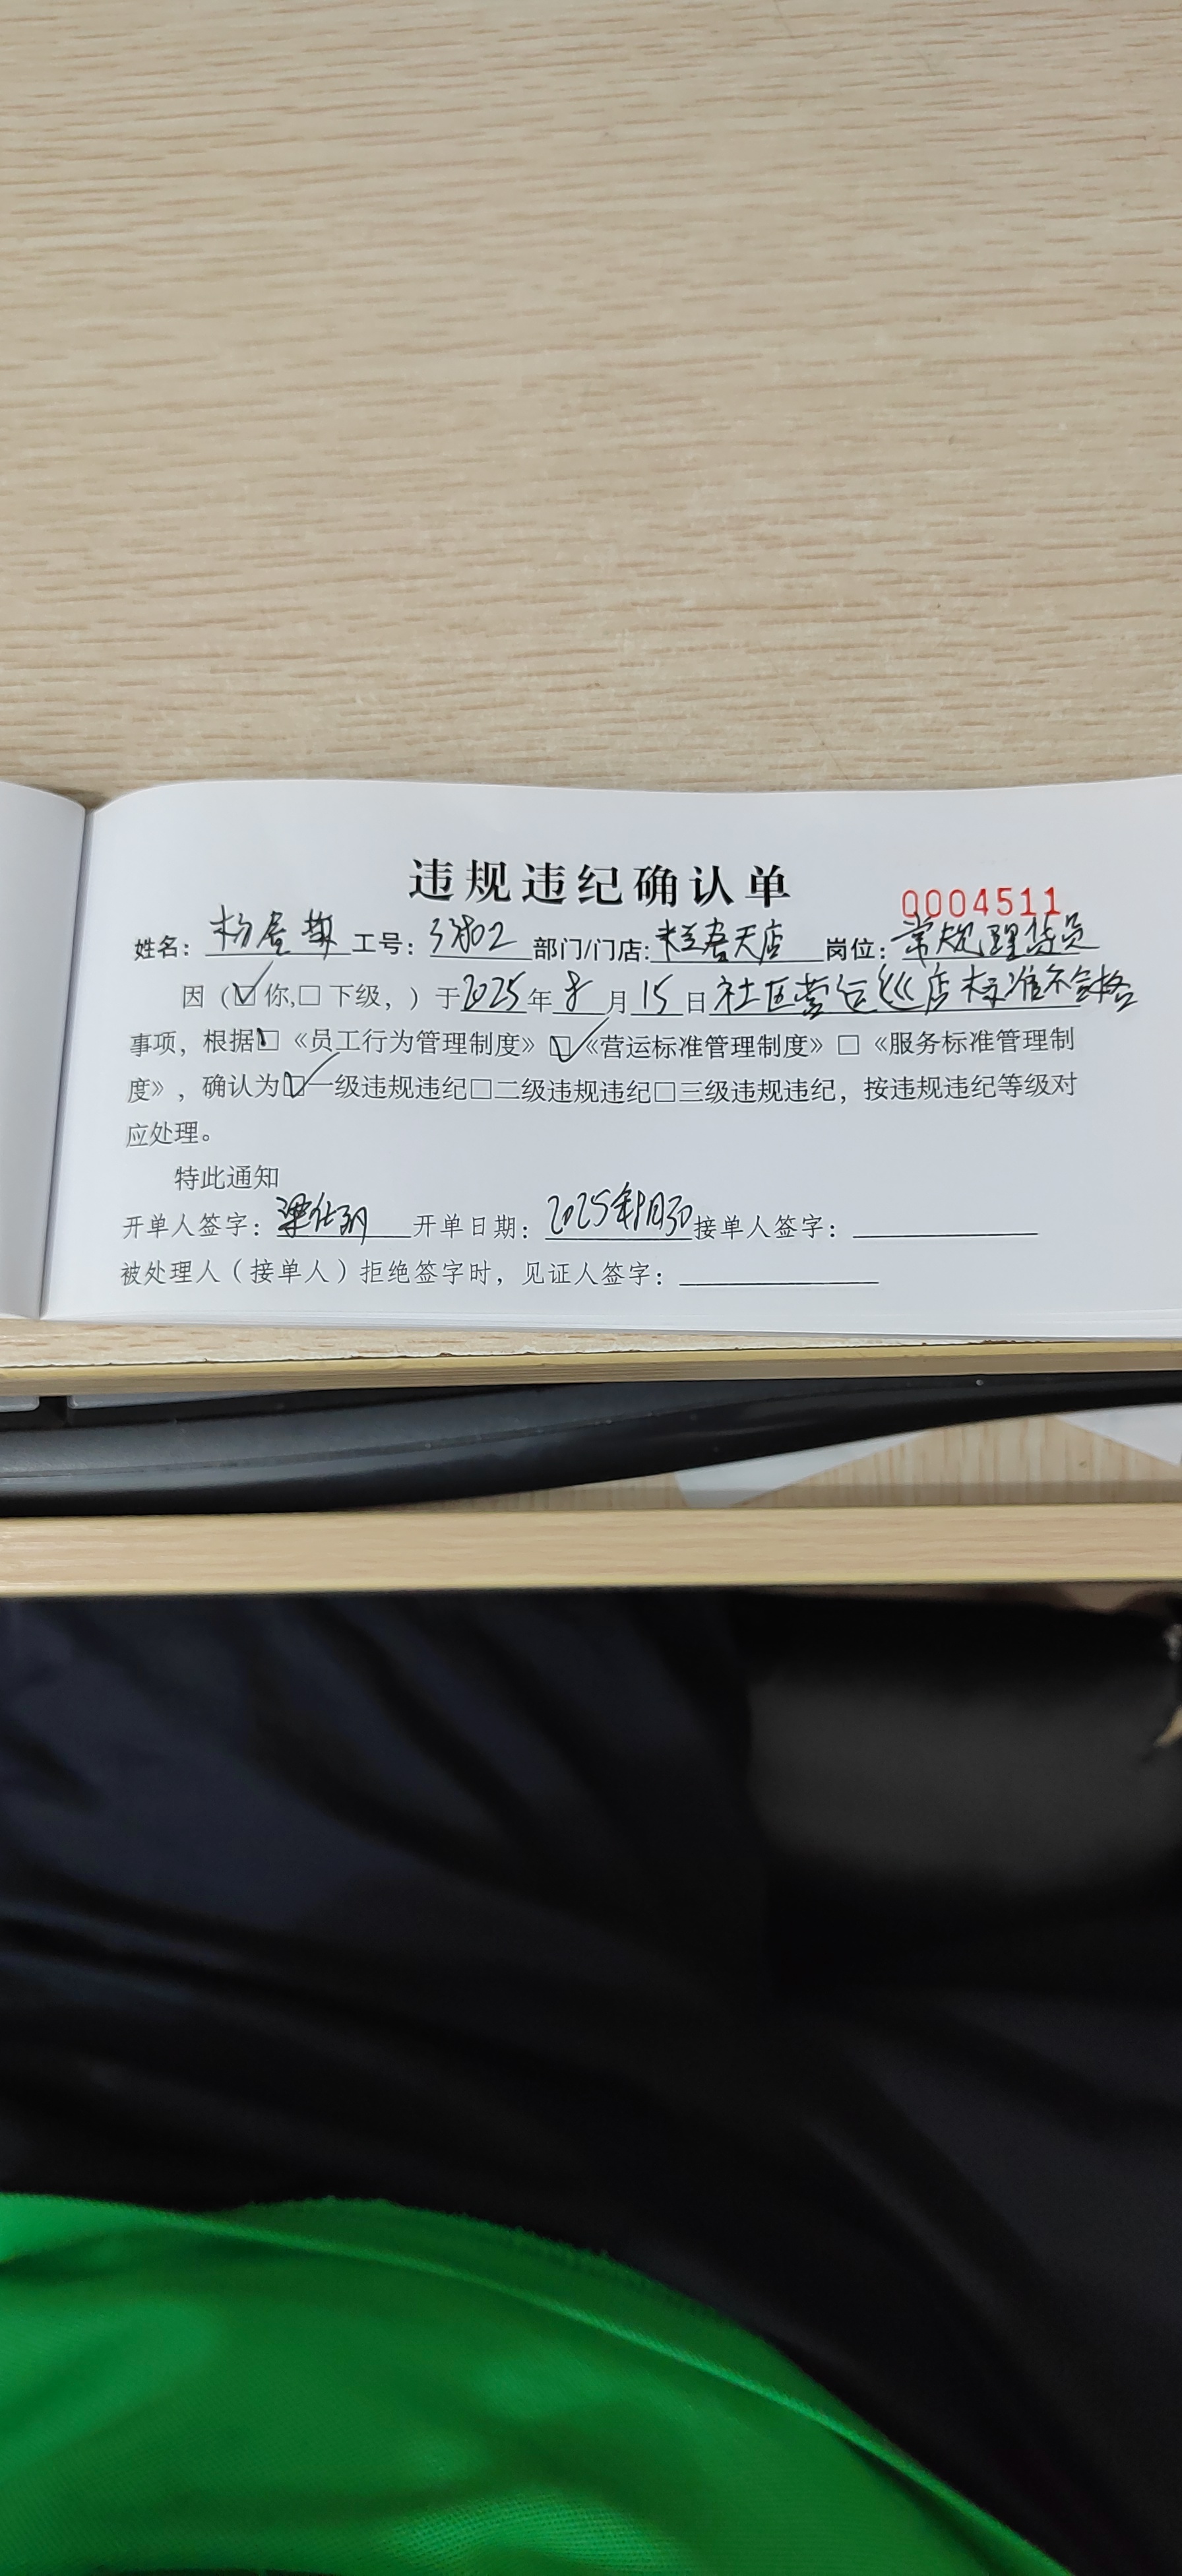 违规违纪确认单
0004511
姓名: 杨居 工号: 33802 部门/门店: 春天店 岗位: 常规理货员
因（☑你,□下级，）于2025年8月15日社区营运巡店标准不合格
事项，根据□《员工行为管理制度》☑《营运标准管理制度》□《服务标准管理制
度》，确认为☑一级违规违纪□二级违规违纪□三级违规违纪，按违规违纪等级对
应处理。
特此通知
开单人签字: 梁仕 开单日期: 2025年8月30 接单人签字:
被处理人（接单人）拒绝签字时，见证人签字: